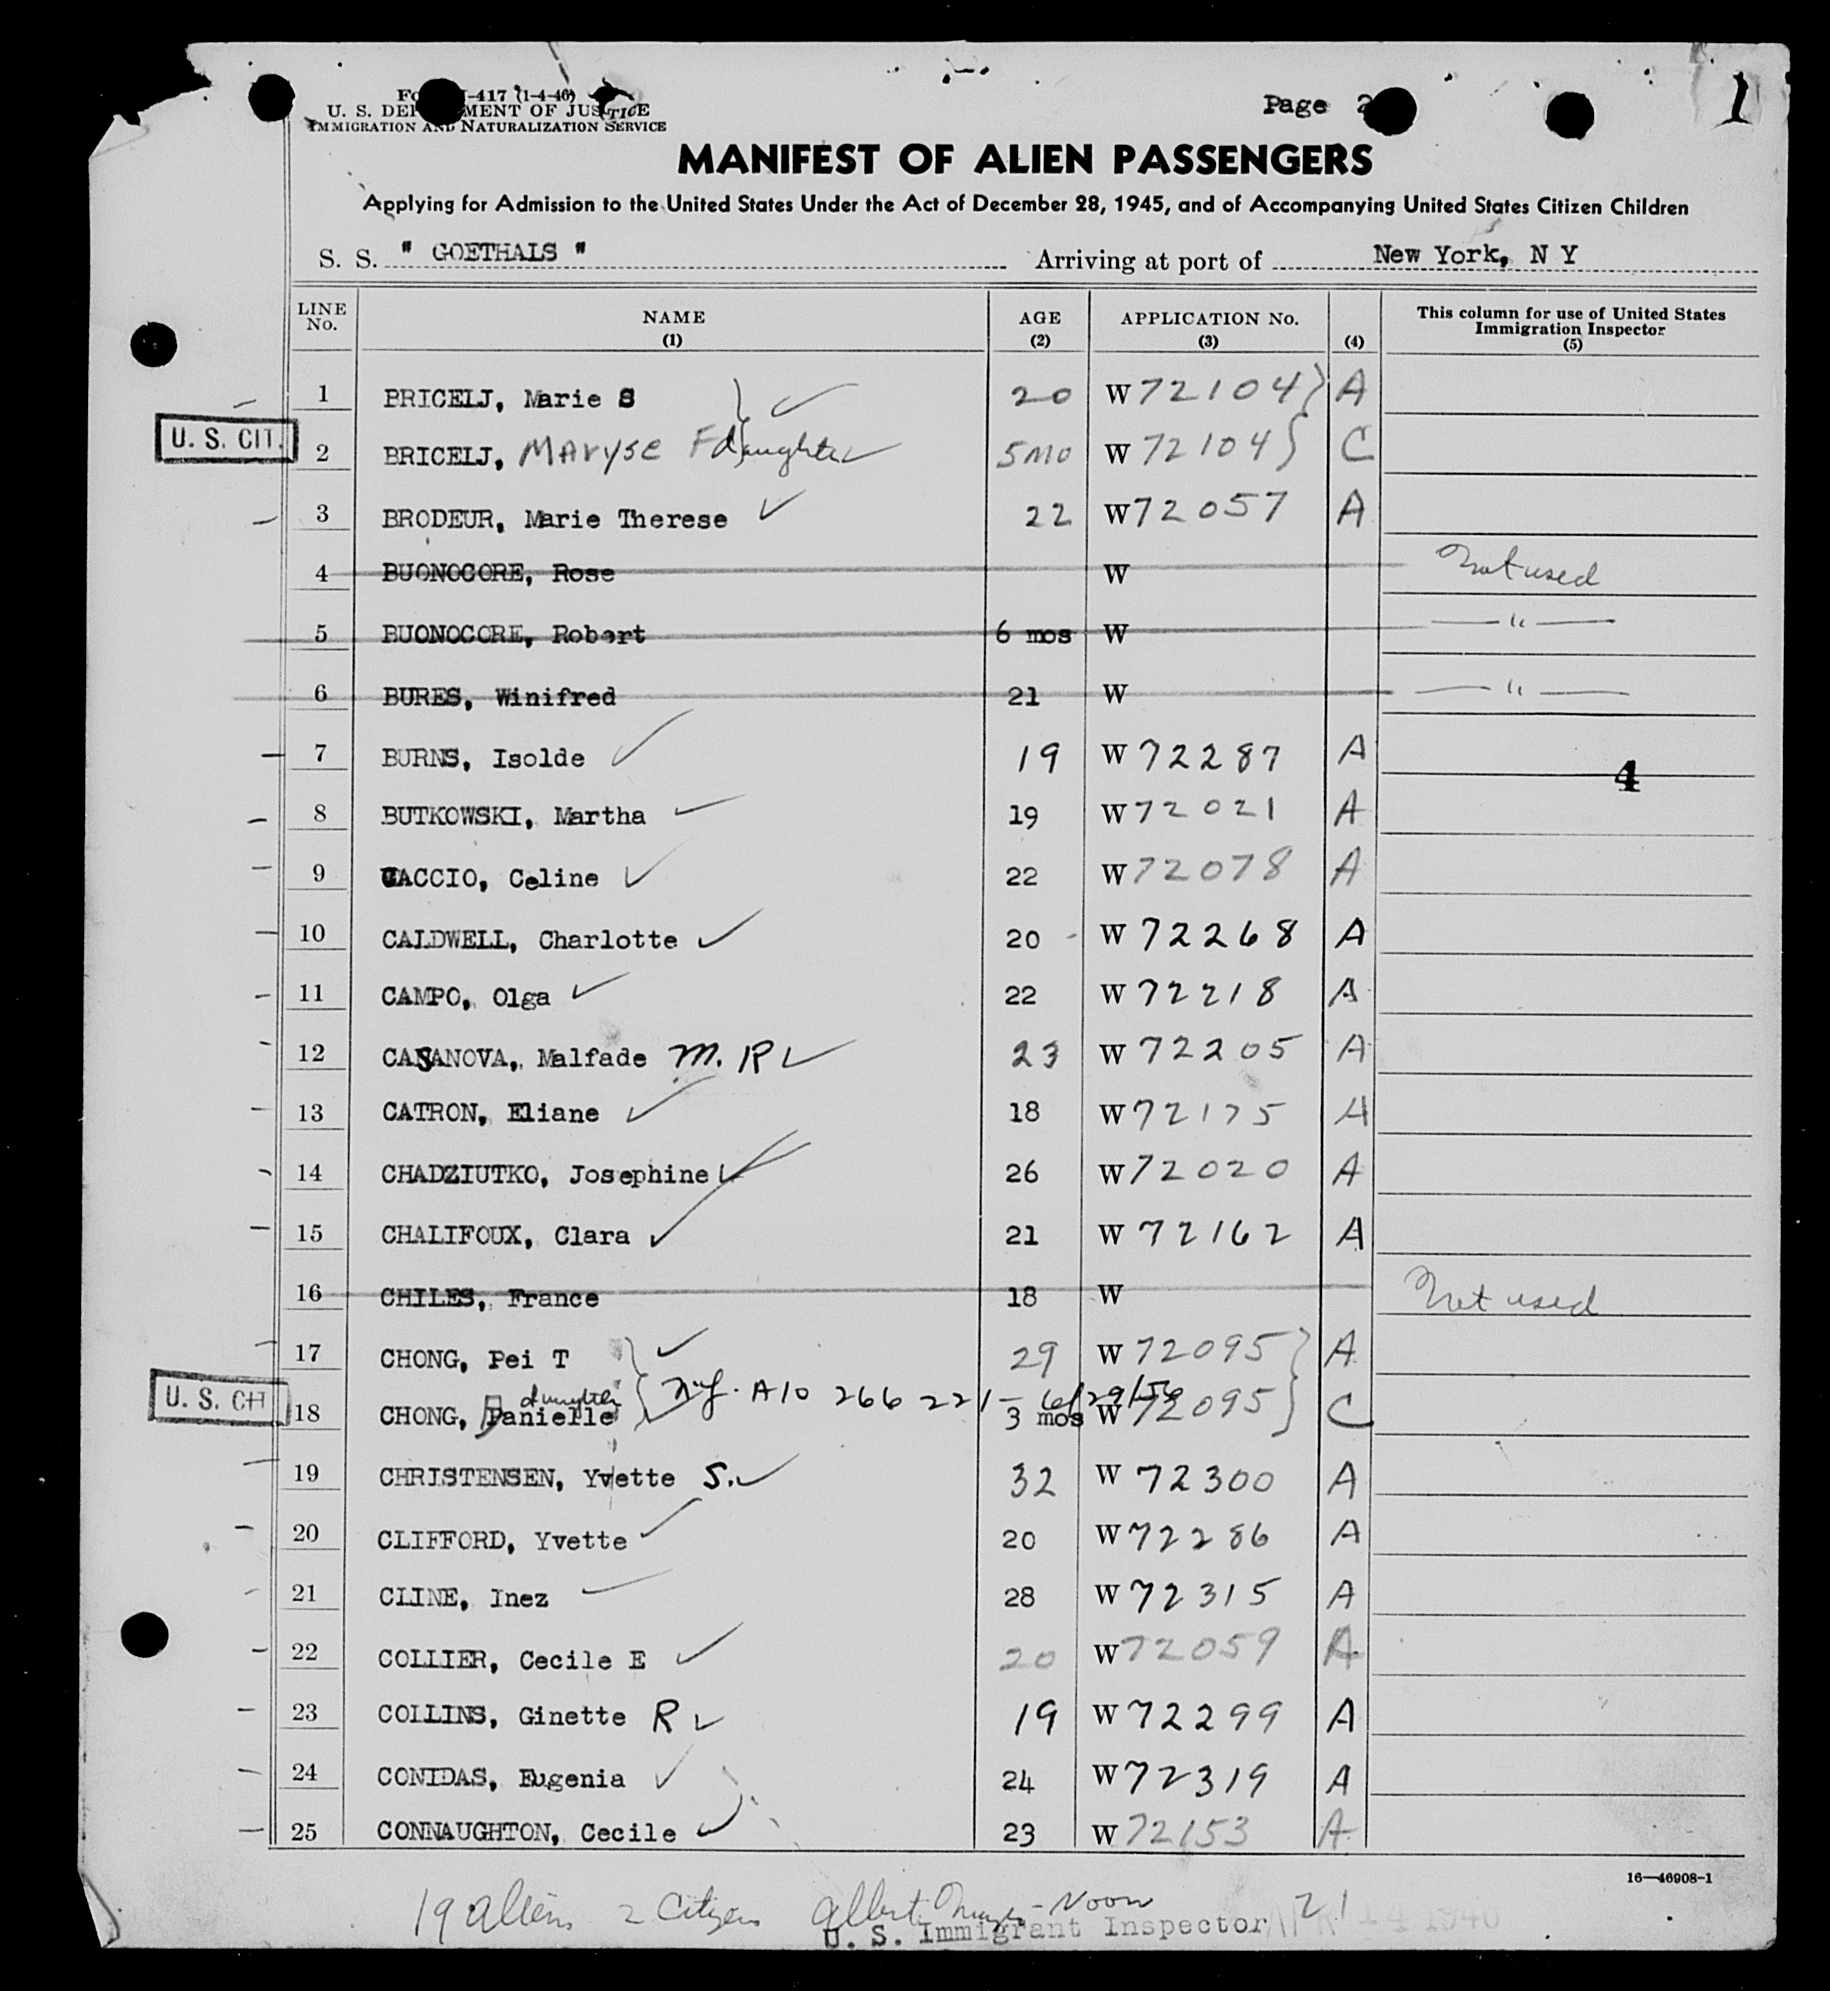 Page 2
1
Form I-417 (1-4-46)
U. S. DEPARTMENT OF JUSTICE
IMMIGRATION AND NATURALIZATION SERVICE
MANIFEST OF ALIEN PASSENGERS
Applying for Admission to the United States Under the Act of December 28, 1945, and of Accompanying United States Citizen Children
S. S. " GOETHALS " Arriving at port of New York, N Y
LINE No. NAME (1) AGE (2) APPLICATION No. (3) (4) This column for use of United States Immigration Inspector (5)
1 BRICELJ, Marie S 20 W 72104 A
U. S. CIT. 2 BRICELJ, Maryse F daughter 5 mo W 72104 C
3 BRODEUR, Marie Therese 22 W 72057 A
4 BUONOCORE, Rose W Not used
5 BUONOCORE, Robert 6 mos W — " —
6 BURES, Winifred 21 W — " —
7 BURNS, Isolde 19 W 72287 A
4
8 BUTKOWSKI, Martha 19 W 72021 A
9 CACCIO, Celine 22 W 72078 A
10 CALDWELL, Charlotte 20 W 72268 A
11 CAMPO, Olga 22 W 72218 A
12 CASANOVA, Malfade M. R 23 W 72205 A
13 CATRON, Eliane 18 W 72175 A
14 CHADZIUTKO, Josephine 26 W 72020 A
15 CHALIFOUX, Clara 21 W 72162 A
16 CHILES, France 18 W Not used
17 CHONG, Pei T 29 W 72095 A
daughter A10 266 221 - 6/29/56
U. S. CIT 18 CHONG, Danielle 3 mos W 72095 C
19 CHRISTENSEN, Yvette S. 32 W 72300 A
20 CLIFFORD, Yvette 20 W 72286 A
21 CLINE, Inez 28 W 72315 A
22 COLLIER, Cecile E 20 W 72059 A
23 COLLINS, Ginette R 19 W 72299 A
24 CONIDAS, Eugenia 24 W 72319 A
25 CONNAUGHTON, Cecile 23 W 72153 A
16—46908-1
19 aliens 2 Citizens Albert Noon 21
U. S. Immigrant Inspector APR 14 1946